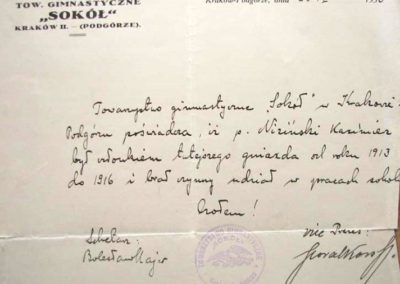 TOW. GIMNASTYCZNE
„SOKÓŁ”
KRAKÓW II. — (PODGÓRZE).
Kraków-Podgórze, dnia
Towarzystwo gimnastyczne „Sokół” w Krakowie-
Podgórzu poświadcza, iż p. Niziński Kazimierz
był członkiem tutejszego gniazda od roku 1913
do 1916 i brał czynny udział w pracach sokol
Czołem!
Sekretarz
Bolesław Majer
vice Prezes: